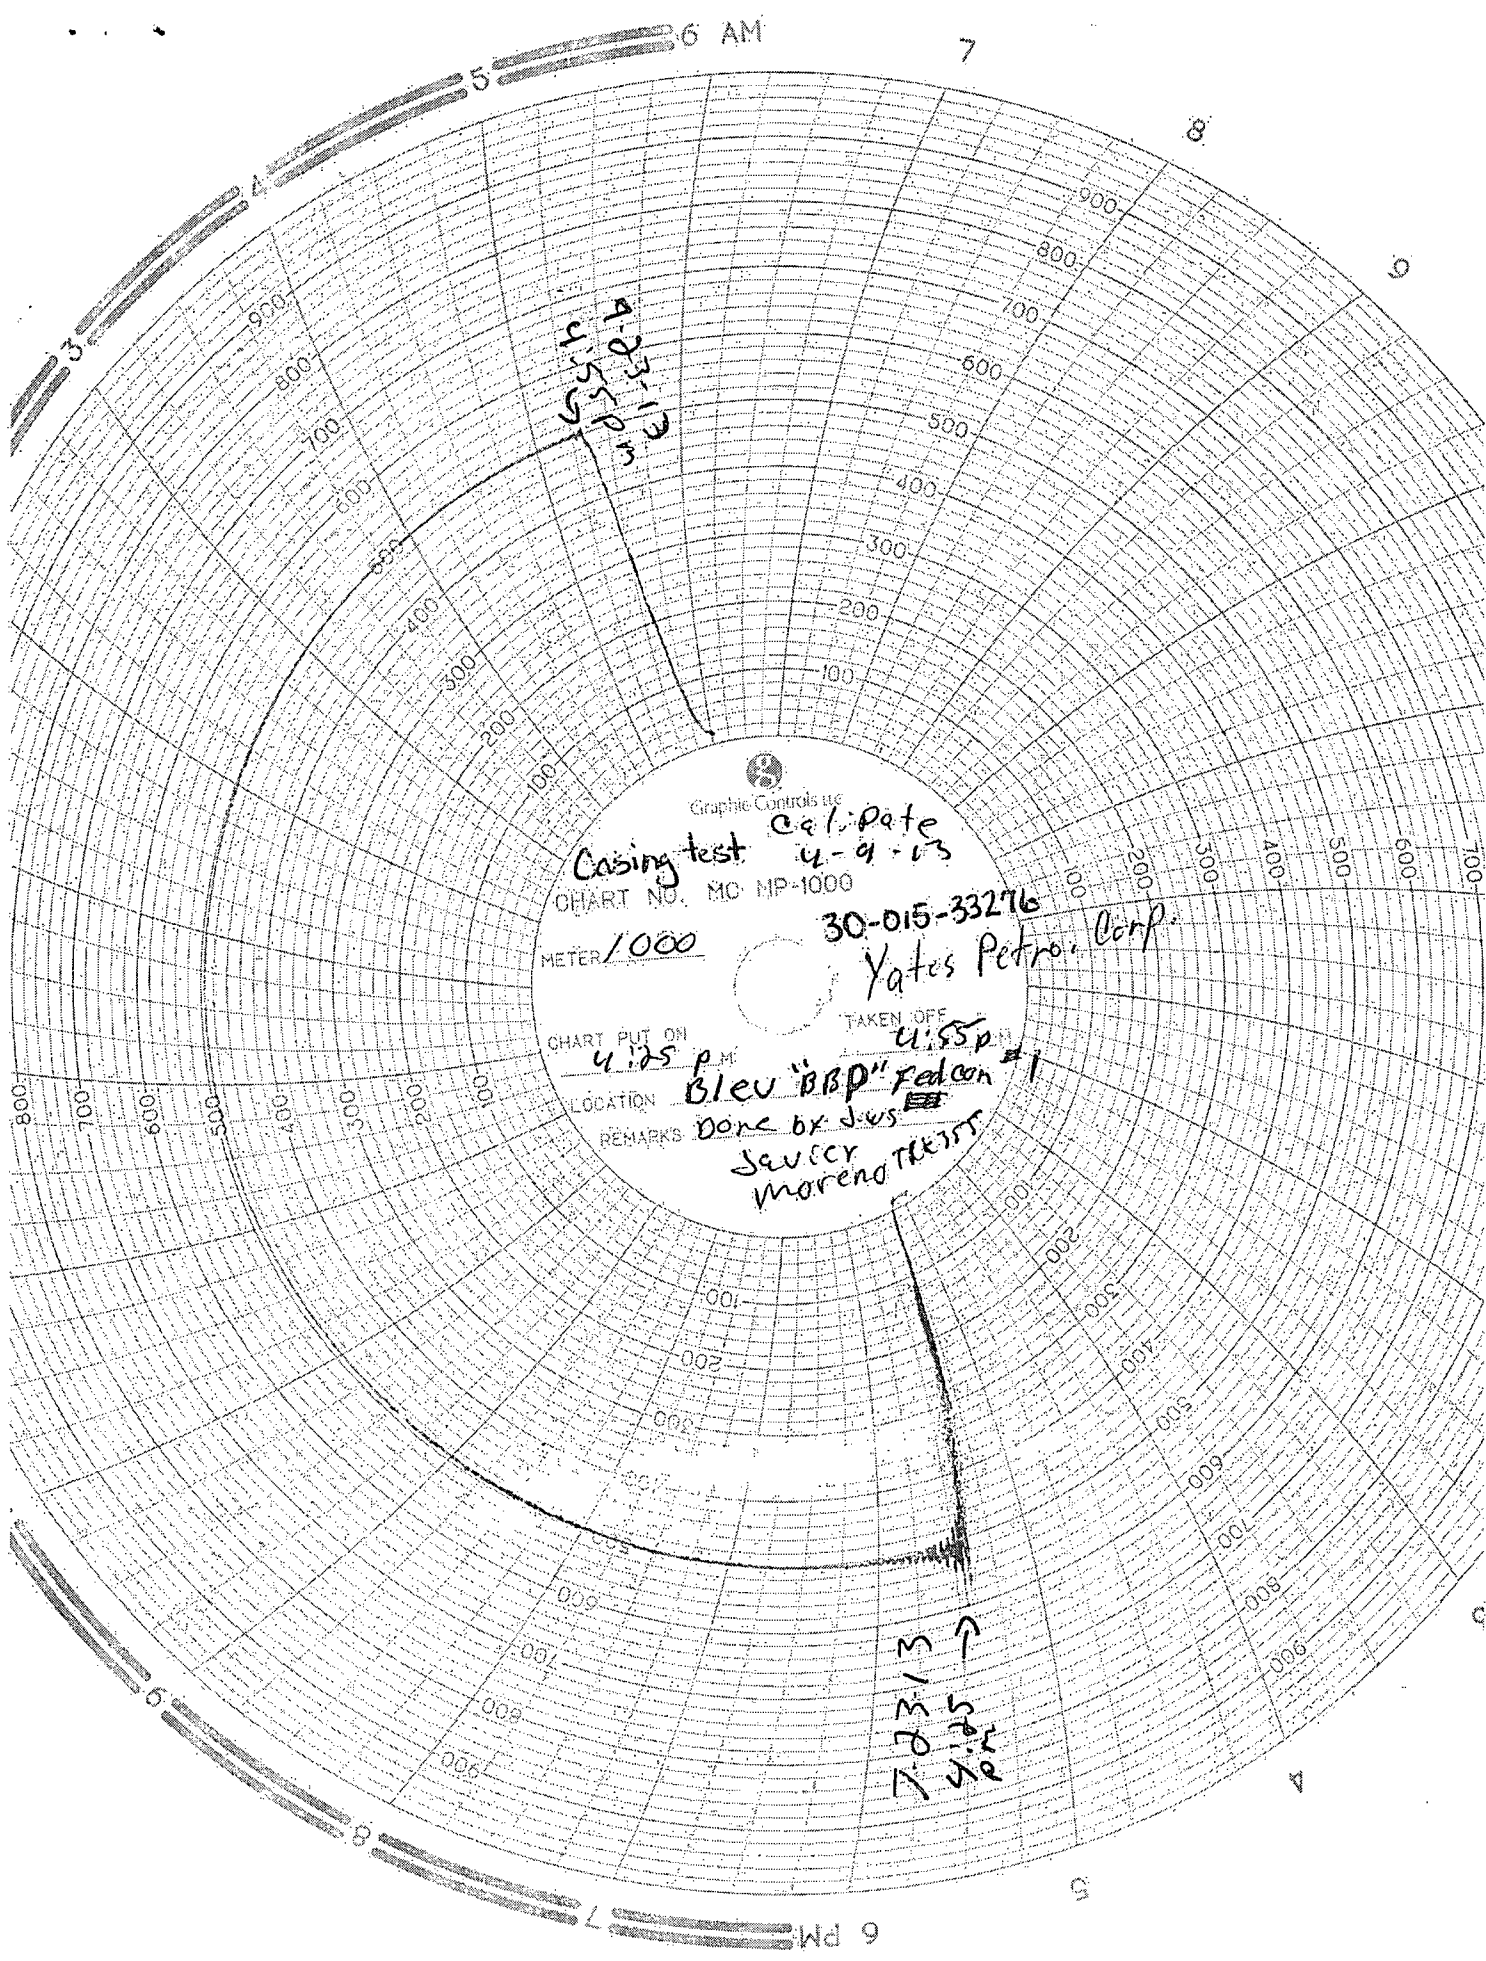 6 AM
7
8
9
5
4
3
900
800
700
600
500
400
300
200
100
900
800
700
600
500
400
300
200
100
4:55 pm
Graphic Controls LLC
Casing test
Cal. Date
4-9-13
CHART NO. MC MP-1000
METER 1000
30-015-33276
Yates Petro. Corp.
CHART PUT ON
4:25 P.M.
TAKEN OFF
4:55 p M
LOCATION Bleu "BBP" Fed Com #1
REMARKS Done by JWS
Javier
Moreno TRK355
100
200
300
400
500
600
700
800
700
600
500
400
300
200
100
100
200
300
500
600
700
800
900
100
200
300
400
500
600
700
800
900
4:25
pm
9
8
7
6 PM
5
4